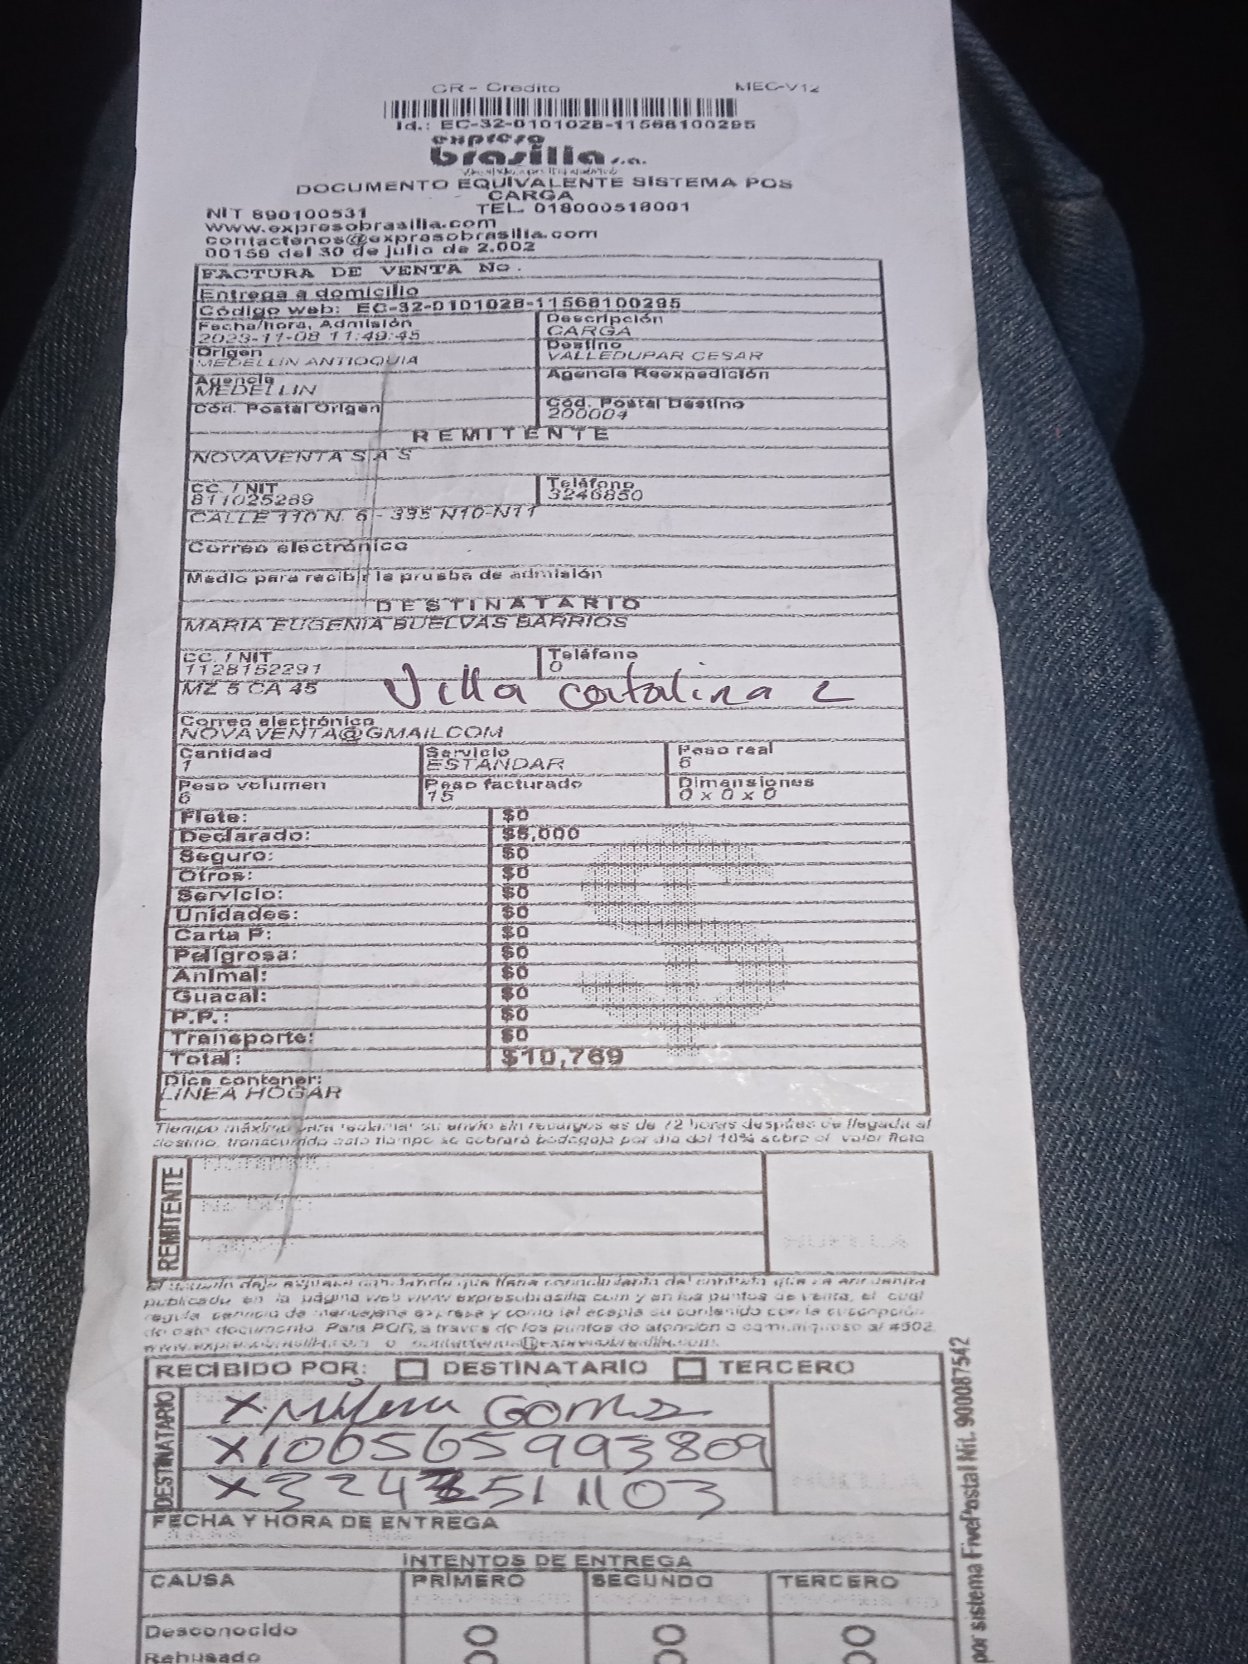 CR - Credito MEC-V12
Id.: EC-32-0101028-11568100295
expreso
brasilia s.a.
DOCUMENTO EQUIVALENTE SISTEMA POS
CARGA
NIT 890100531 TEL. 018000518001
www.expresobrasilia.com
contactenos@expresobrasilia.com
00159 del 30 de julio de 2.002
FACTURA DE VENTA No.
Entrega a domicilio
Código web: EC-32-0101028-11568100295
Fecha/hora, Admisión Descripción
2023-11-08 11:49:45 CARGA
Origen Destino
MEDELLIN ANTIOQUIA VALLEDUPAR CESAR
Agencia Agencia Reexpedición
MEDELLIN
Cód. Postal Origen Cód. Postal Destino
200004
REMITENTE
NOVAVENTA S A S
CC. / NIT Teléfono
811025289 3246850
CALLE 110 N. 6 - 335 N10-N11
Correo electrónico
Medio para recibir la prueba de admisión
DESTINATARIO
MARIA EUGENIA BUELVAS BARRIOS
CC. / NIT Teléfono
1128152291 0
MZ 5 CA 45 Villa catalina 2
Correo electrónico
NOVAVENTA@GMAIL.COM
Cantidad Servicio Peso real
1 ESTANDAR 6
Peso volumen Peso facturado Dimensiones
6 15 0 x 0 x 0
Flete: $0
Declarado: $5,000
Seguro: $0
Otros: $0
Servicio: $0
Unidades: $0
Carta P: $0
Peligrosa: $0
Animal: $0
Guacal: $0
P.P.: $0
Transporte: $0
Total: $10,769
Dice contener:
LINEA HOGAR
Tiempo máximo para reclamar su envío sin recargos es de 72 horas después de llegada al
destino, transcurrido este tiempo se cobrará bodegaje por día del 10% sobre el valor flete
REMITENTE
El usuario deja expresa constancia que tiene conocimiento del contrato que se encuentra
publicado en la página web www.expresobrasilia.com y en los puntos de venta, el cual
regula servicio de mensajería expresa y como tal acepta su contenido con la suscripción
de este documento. Para PQR, a través de los puntos de atención o comuníquese al #502,
www.expresobrasilia.com o contactenos@expresobrasilia.com.
RECIBIDO POR: DESTINATARIO TERCERO
DESTINATARIO
X
X1005659993809
X
FECHA Y HORA DE ENTREGA
INTENTOS DE ENTREGA
CAUSA PRIMERO SEGUNDO TERCERO
Desconocido
Rehusado
por sistema FivePostal Nit. 900087542